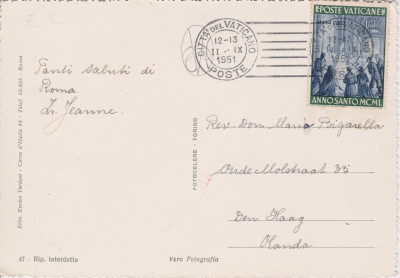 CITTÀ DEL VATICANO
12-13
11 · IX
1951
POSTE
POSTE VATICANE
ANNO SANTO MCML
Tanti saluti di
Roma
Zr. Jeanne.
Rev. Dom. Maria Bigarella
Oude Molstraat 35
Den Haag
Olanda
FOTOCELERE · TORINO
Ediz. Enrico Verdesi - Corso d'Italia 84 - Telef. - Roma
47 - Rip. interdetta
Vera Fotografia